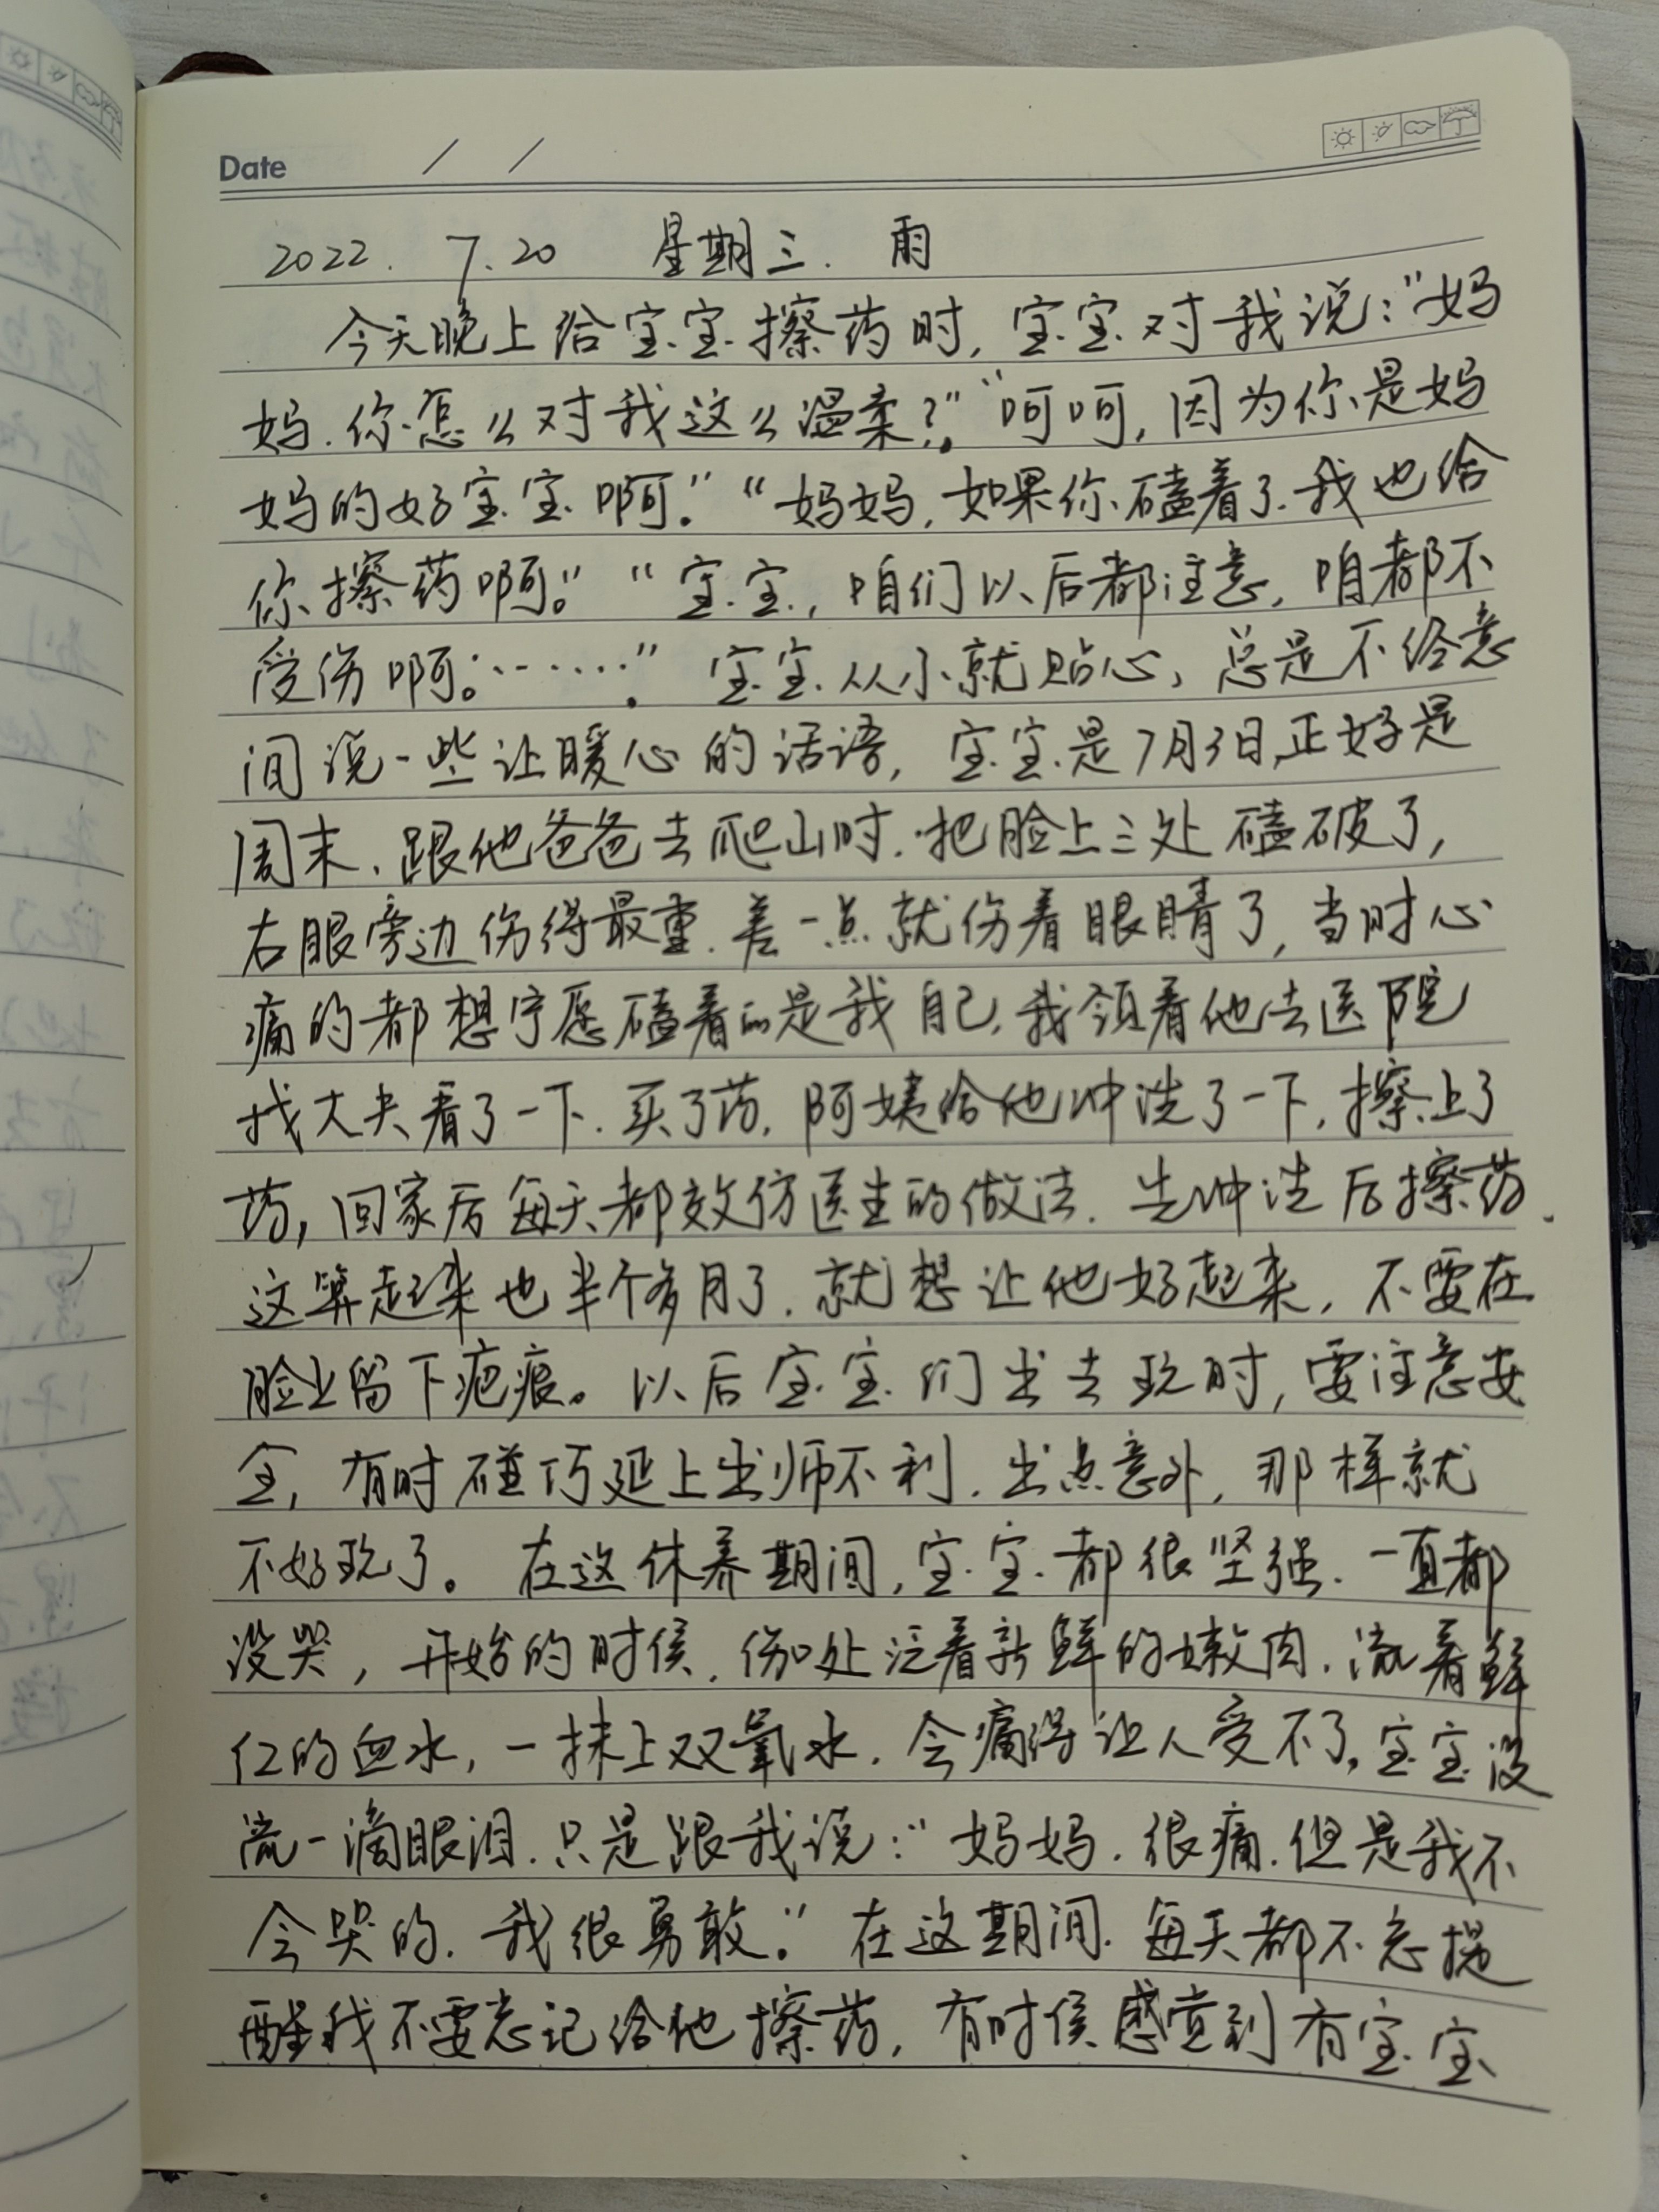 Date / /
2022. 7.20 星期三. 雨
今天晚上给宝宝擦药时, 宝宝对我说:“妈
妈.你怎么对我这么温柔?。”“呵呵,因为你是妈
妈的好宝宝啊。”“妈妈,如果你磕着了.我也给
你擦药啊。”“宝宝,咱们以后都注意,咱都不
受伤啊。……。”宝宝从小就贴心,总是不经意
间说一些让暖心的话语,宝宝是7月3日,正好是
周末、跟他爸爸去爬山时.把脸上三处磕破了,
右眼旁边伤得最重.差一点就伤着眼睛了,当时心
痛的都想宁愿磕着的是我自己,我领着他去医院
找大夫看了一下.买了药,阿姨给他冲洗了一下,擦上了
药,回家后每天都效仿医生的做法.先冲洗后擦药.
这算起来也半个多月了.就想让他好起来,不要在
脸上留下疤痕。以后宝宝们出去玩时,要注意安
全,有时碰巧延上出师不利.出点意外,那样就
不好玩了。在这休养期间,宝宝都很坚强.一直都
没哭,开始的时侯,伤口处泛着新鲜的嫩肉.流着鲜
红的血水,一抹上双氧水.会痛得让人受不了。宝宝没
流一滴眼泪.只是跟我说:“妈妈.很痛.但是我不
会哭的.我很勇敢。”在这期间.每天都不忘提
醒我不要忘记给他擦药,有时侯感觉到有宝宝